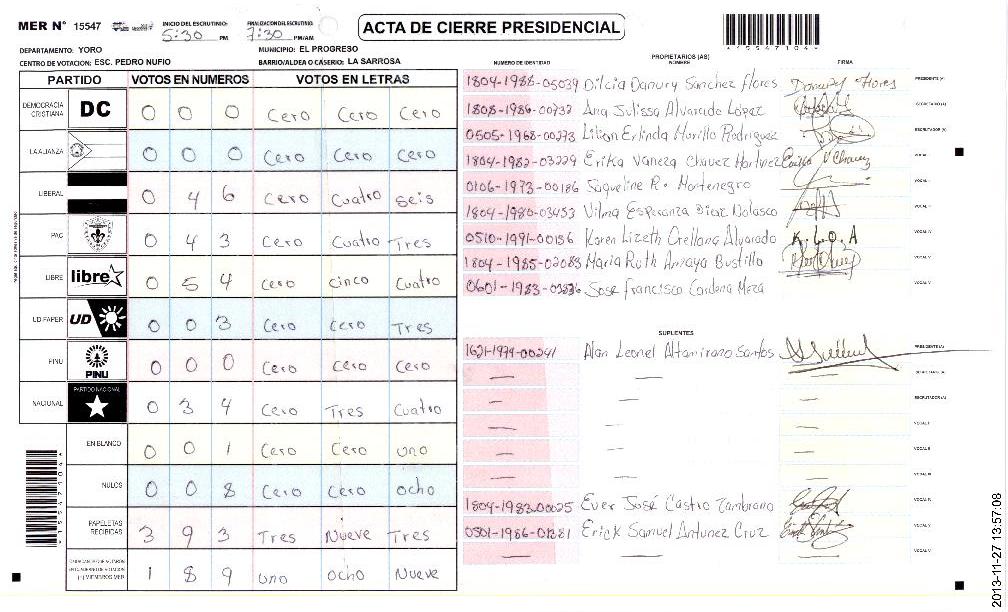 MER N° 15547 INICIO DEL ESCRUTINIO 5:30 PM FINALIZACION DEL ESCRUTINIO 7:30 PM/AM
ACTA DE CIERRE PRESIDENCIAL
*15547104*
DEPARTAMENTO: YORO MUNICIPIO: EL PROGRESO
CENTRO DE VOTACION: ESC. PEDRO NUFIO BARRIO/ALDEA O CASERIO: LA SARROSA
PARTIDO VOTOS EN NUMEROS VOTOS EN LETRAS
DEMOCRACIA CRISTIANA DC 0 0 0 Cero Cero Cero
LA ALIANZA 0 0 0 Cero Cero Cero
LIBERAL 0 4 6 Cero Cuatro Seis
PAC 0 4 3 Cero Cuatro Tres
LIBRE libre 0 5 4 Cero cinco Cuatro
UD FAPER UD 0 0 3 Cero Cero Tres
PINU PINU 0 0 0 Cero Cero Cero
NACIONAL PARTIDO NACIONAL 0 3 4 Cero Tres Cuatro
EN BLANCO 0 0 1 Cero Cero uno
NULOS 0 0 8 Cero Cero ocho
PAPELETAS RECIBIDAS 3 9 3 Tres Nueve Tres
1 8 9 uno ocho Nueve
PROPIETARIOS (AS)
NUMERO DE IDENTIDAD NOMBRE FIRMA
1804-1988-05039 Dilcia Danury Sanchez Flores Danury Flores PRESIDENTE (A)
1808-1986-00732 Ana Julissa Alvarado López SECRETARIO (A)
0505-1968-00273 Lilian Erlinda Murillo Rodriguez ESCRUTADOR (A)
1804-1982-03229 Erika Vaneza Chavez Martinez Erika V Chavez VOCAL I
0106-1973-00186 Saqueline R. Montenegro VOCAL
1804-1980-03453 Vilma Esperanza Diaz Nolasco VOCAL
0510-1991-00156 Karen Lizeth Orellana Alvarado K. L. O. A VOCAL IV
1804-1985-02083 Maria Ruth Amaya Bustillo VOCAL V
0601-1983- Jose Francisco Cardona Meza VOCAL V
SUPLENTES
1621-1979-00241 Alan Leonel Altamirano Santos PRESIDENTE (A)
SECRETARIO (A)
ESCRUTADOR (A)
VOCAL I
VOCAL II
VOCAL III
1804-1983-00025 Ever José Castro Zambrano VOCAL IV
0501-1986-01281 Erick Samuel Antunez Cruz VOCAL V
VOCAL V
2013-11-27 13:57:08